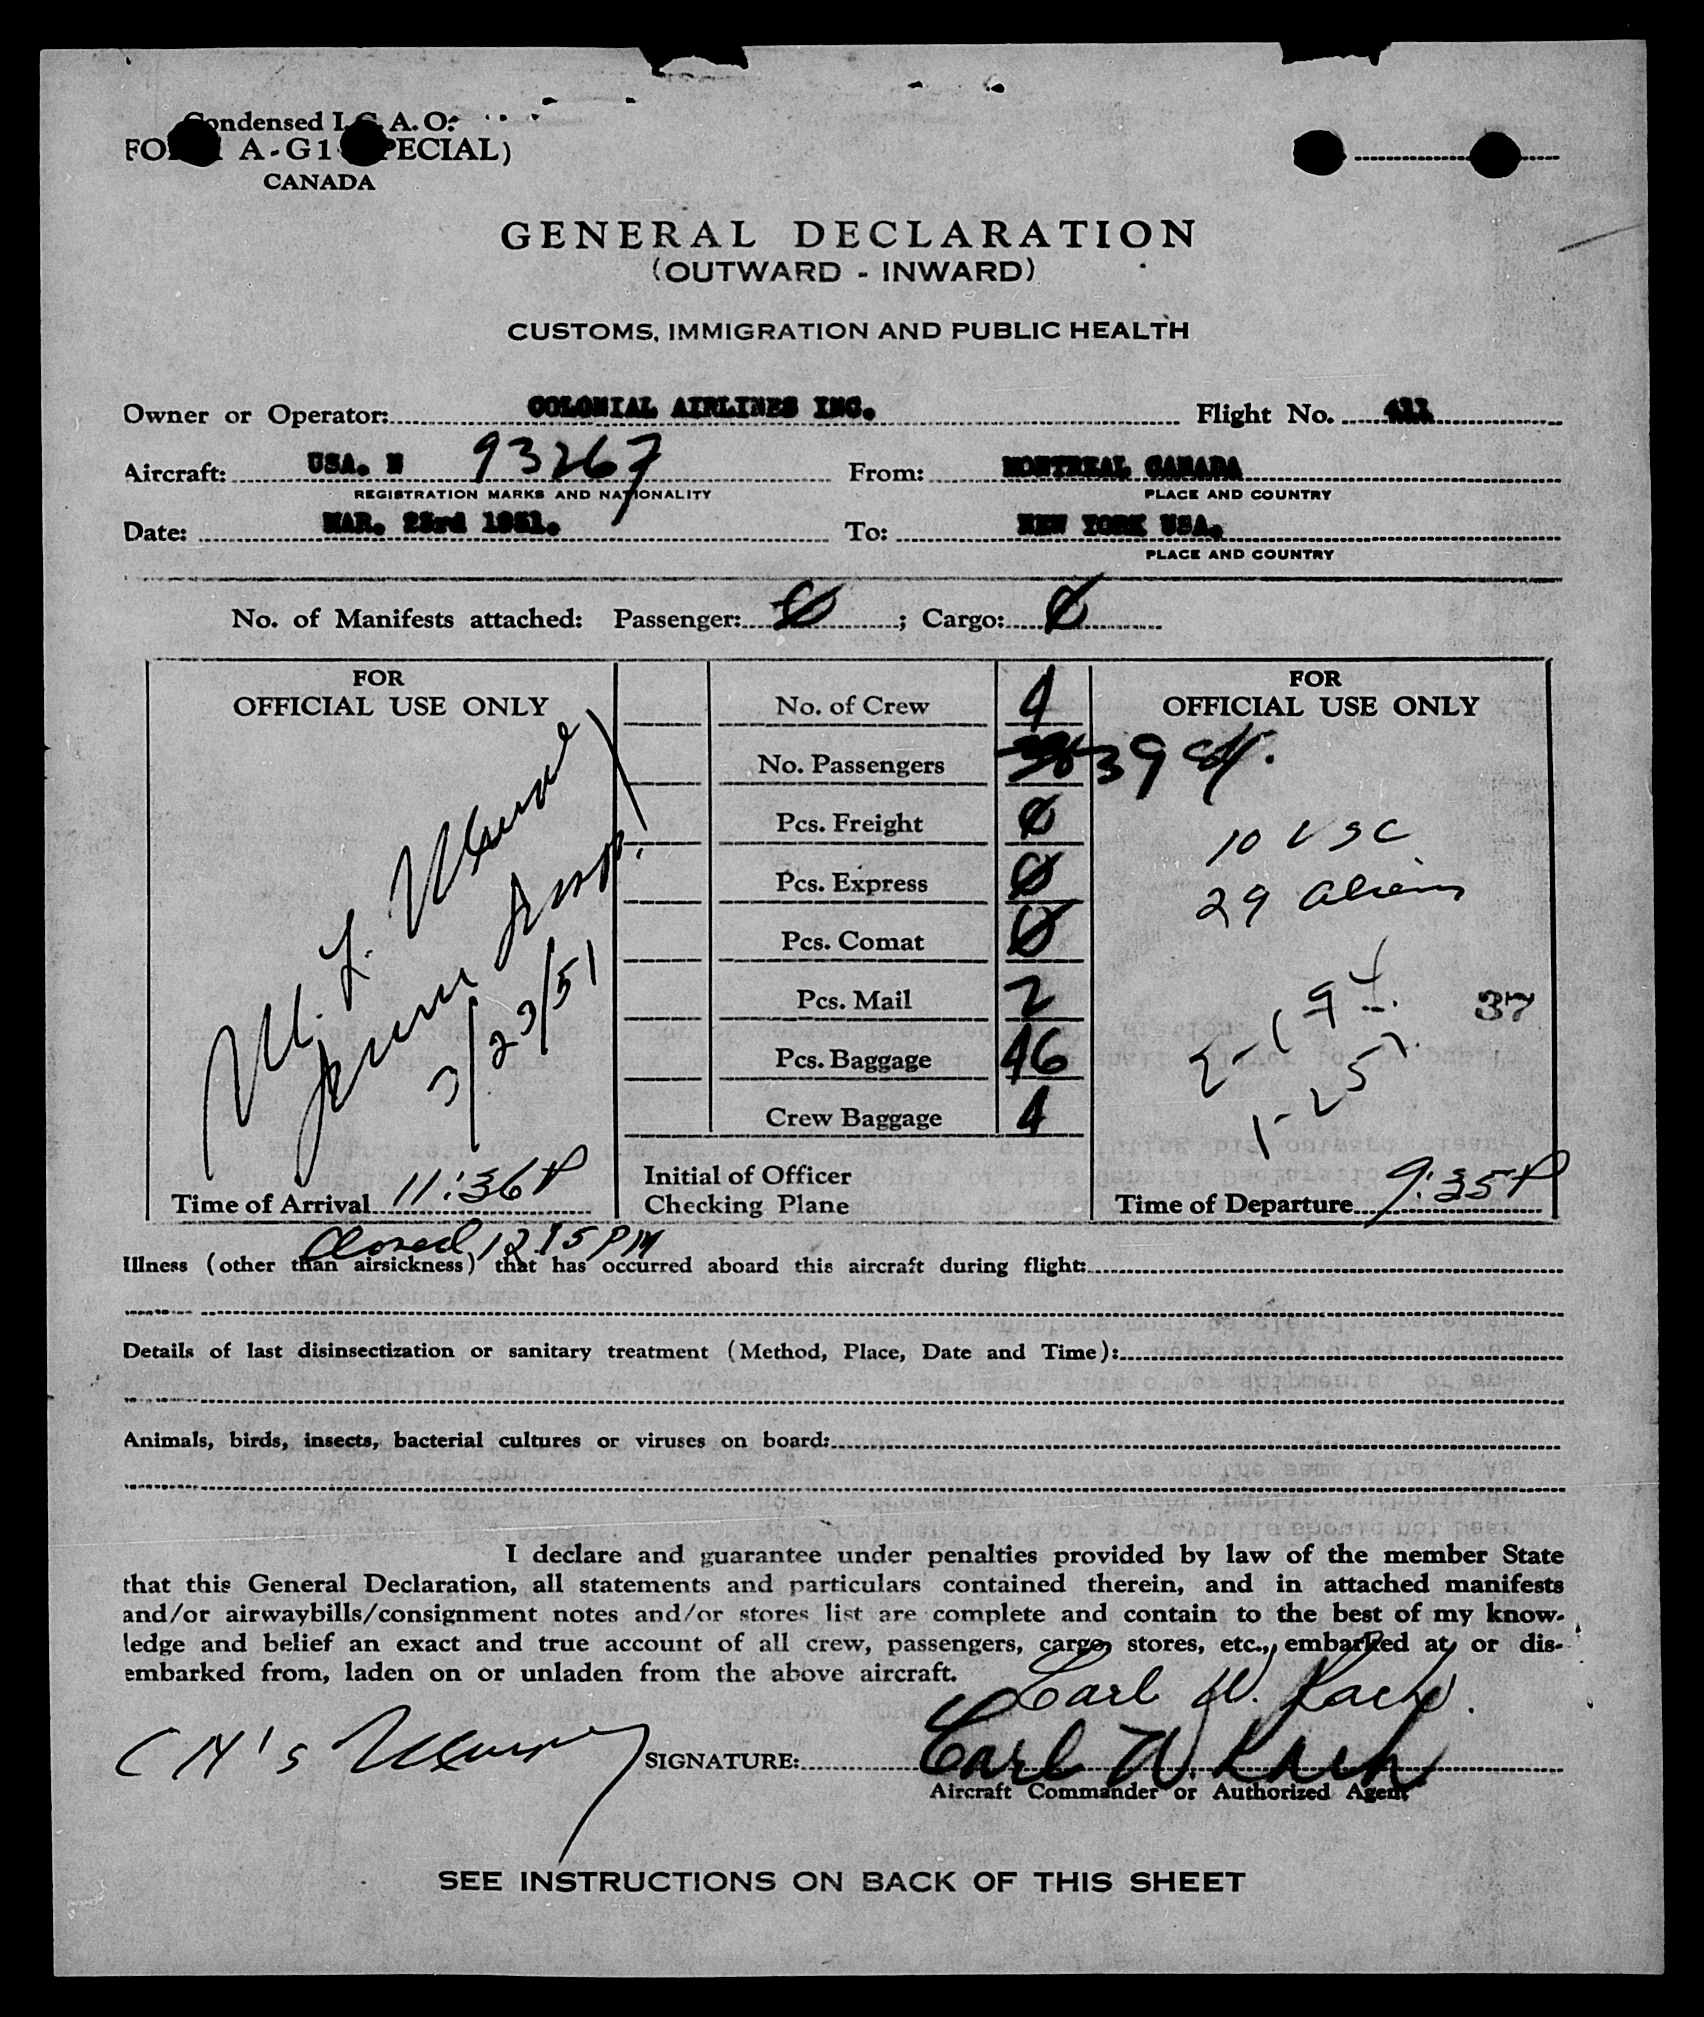 Condensed I.C.A.O.
FORM A-G1 (SPECIAL)
CANADA
GENERAL DECLARATION
(OUTWARD - INWARD)
CUSTOMS, IMMIGRATION AND PUBLIC HEALTH
Owner or Operator: COLONIAL AIRLINES INC. Flight No. 411
Aircraft: USA. N 93267 From: MONTREAL CANADA
REGISTRATION MARKS AND NATIONALITY PLACE AND COUNTRY
Date: MAR. 23rd 1951. To: NEW YORK USA.
PLACE AND COUNTRY
No. of Manifests attached: Passenger: 0 ; Cargo: 0
FOR
OFFICIAL USE ONLY
3/23/51
Time of Arrival 11:36 P
No. of Crew 4
No. Passengers 38 39
Pcs. Freight 0
Pcs. Express 0
Pcs. Comat 0
Pcs. Mail 2
Pcs. Baggage 46
Crew Baggage 4
Initial of Officer
Checking Plane
FOR
OFFICIAL USE ONLY
10 USC
29 Aliens
37
Time of Departure 9:35 P
Closed 12.15 PM
Illness (other than airsickness) that has occurred aboard this aircraft during flight:
Details of last disinsectization or sanitary treatment (Method, Place, Date and Time):
Animals, birds, insects, bacterial cultures or viruses on board:
I declare and guarantee under penalties provided by law of the member State
that this General Declaration, all statements and particulars contained therein, and in attached manifests
and/or airwaybills/consignment notes and/or stores list are complete and contain to the best of my know-
ledge and belief an exact and true account of all crew, passengers, cargo, stores, etc., embarked at, or dis-
embarked from, laden on or unladen from the above aircraft.
Carl W. Rach.
SIGNATURE: Carl W. Rach
Aircraft Commander or Authorized Agent
SEE INSTRUCTIONS ON BACK OF THIS SHEET